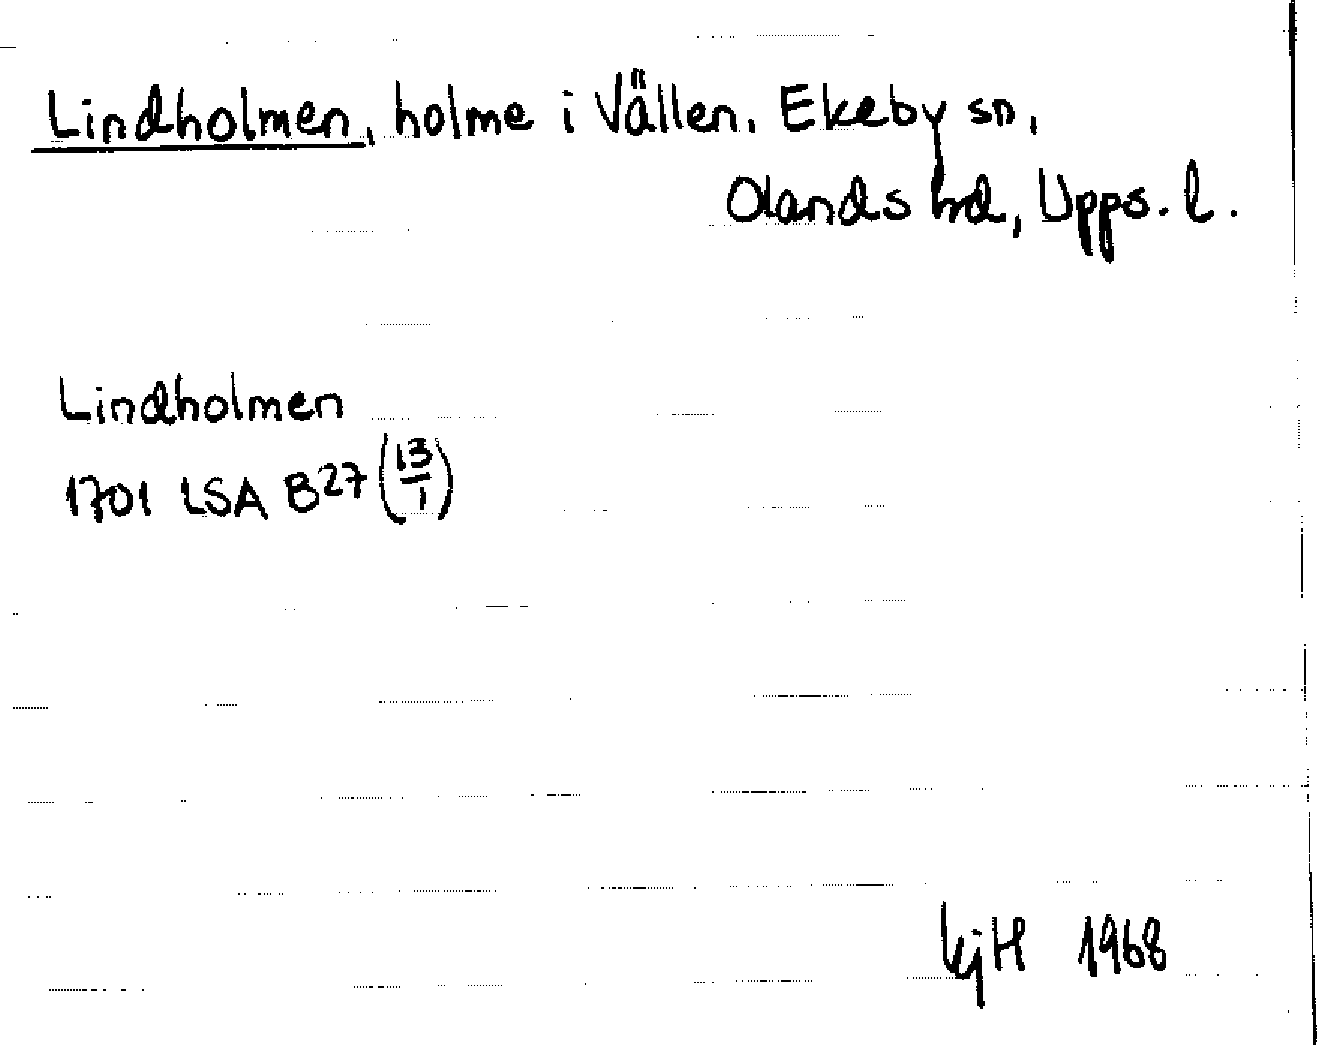 Lindholmen, holme i Vällen. Ekeby sn,
Olands hd, Upps. l.
Lindholmen
1701 LSA B27 (13/1)
kjH 1968